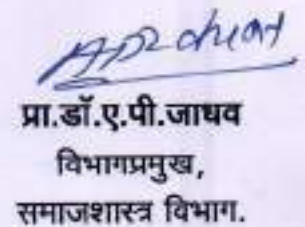 प्रा.डॉ.ए.पी.जाधव
विभागप्रमुख,
समाजशास्त्र विभाग.